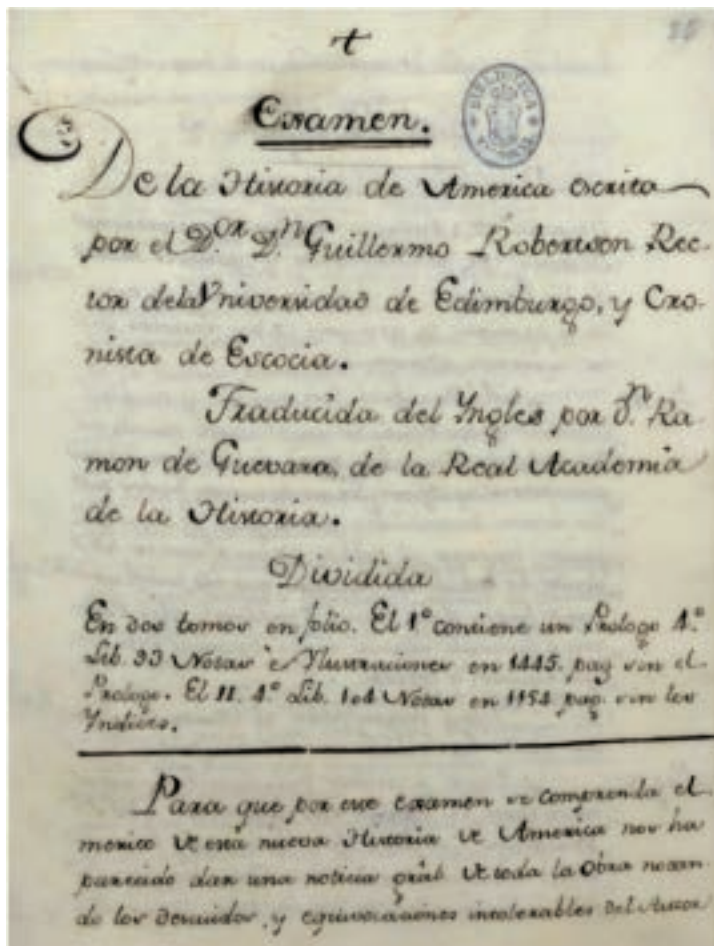 +
Examen.
BIBLIOTECA
De la Historia de America escrita
por el D.or D.n Guillermo Robertson Rec-
tor dela Vniversidad de Edimburgo, y Cro-
nista de Escocia.
Traducida del Yngles por D.n Ra
mon de Guevara, de la Real Academia
de la Historia.
Dividida
En dos tomos en folio. El 1º contiene un Prologo 4.º
Lib. 93 Notas e Ylustraciones en 1445. pag sin el
Prologo. El II. 4.º Lib. 104 Notas en 1154 pag. sin los
Yndices.
Para que por este examen se comprenda el
merito de esta nueva Historia de America nos ha
parecido dar una noticia gral de toda la Obra notan
do los descuidos, y equivocaciones intolerables del Autor